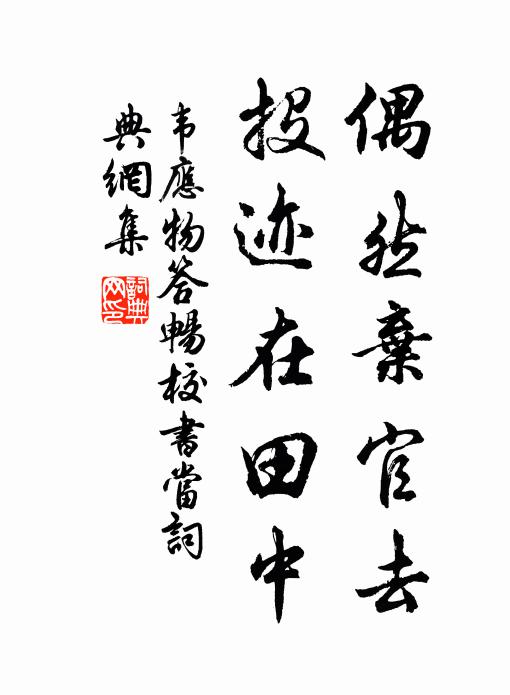 偶然棄官去
投迹在田中
韦應物答暢校書當詞
典網集
詞典
网印